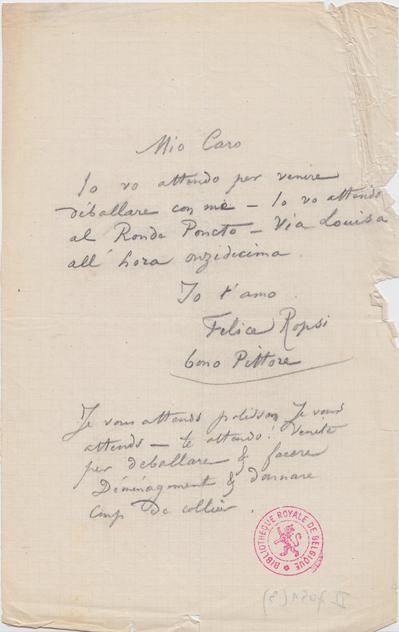 Mio Caro
Io vo attendo per venire
déballare con me – Io vo attendo
al Rondo Poncto – Via Louisa
all' hora onzedecima.
Io t'amo
Felice Ropsi
bono Pittore
Je vous attends polisson Je vous
attends – te attendo! Venite
per deballare & facere
Déménagement & donnare
coup de collier.
BIBLIOTHÈQUE ROYALE DE BELGIQUE